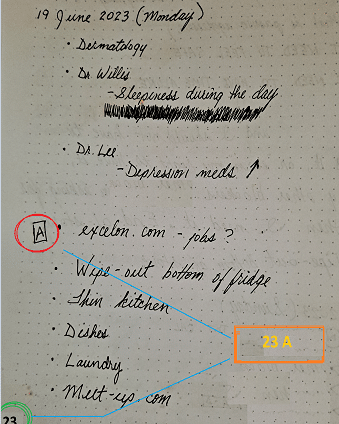 19 June 2023 (Monday)
• Dermatology
• Dr. Willis
- Sleepiness during the day
• Dr. Lee
- Depression meds ↑
A • excelon.com - jobs ?
• Wipe-out bottom of fridge
• Thin kitchen
• Dishes
23 A
• Laundry
• Meet-up.com
23